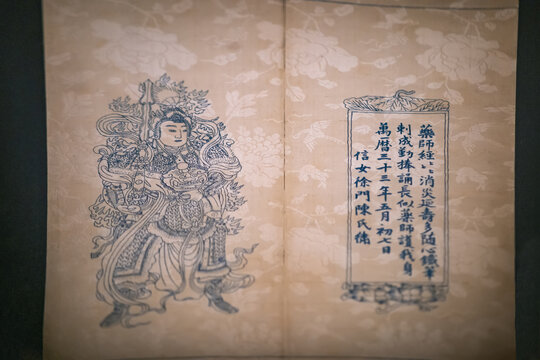 藥師經〻消炎延壽多随心鐵筆
刺成勤捧誦長似藥師護我身
萬曆三十三年五月初七日
信女徐門陳氏繡